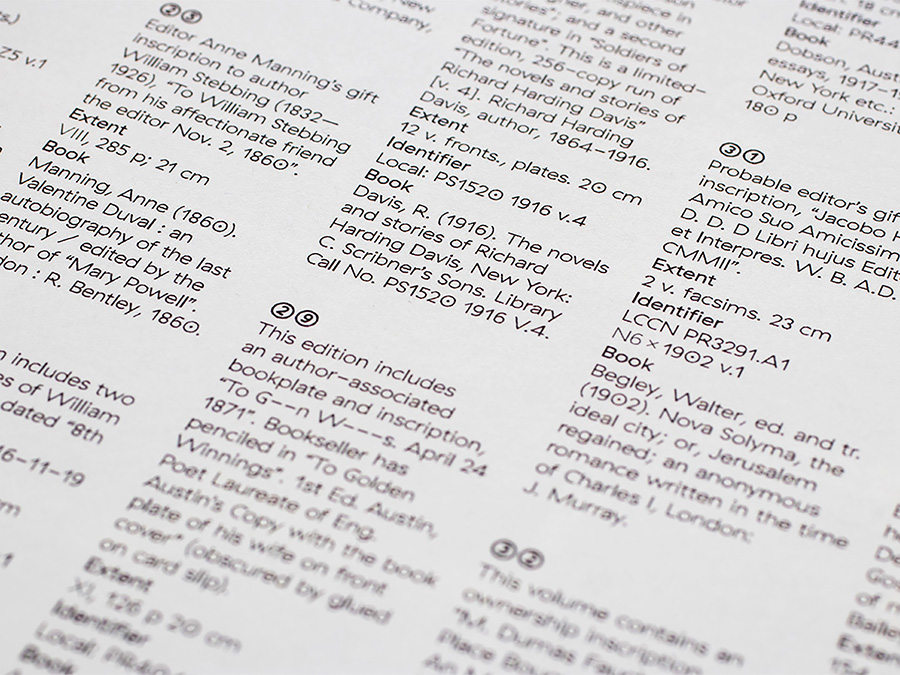 Z5 v.1
23
Editor Anne Manning's gift
inscription to author
William Stebbing (1832–
1926), "To William Stebbing
from his affectionate friend
the editor Nov. 2, 1860".
Extent
VIII, 285 p; 21 cm
Book
Manning, Anne (1860).
Valentine Duval : an
autobiography of the last
entury / edited by the
thor of "Mary Powell".
don : R. Bentley, 1860.
n includes two
es of William
dated "8th
16-11-19
Company,
and other
and a second
signature in "Soldiers of
Fortune". This is a limited-
edition, 256-copy run of
"The novels and stories of
Richard Harding Davis"
[v. 4]. Richard Harding
Davis, author, 1864–1916.
Extent
12 v. fronts., plates. 20 cm
Identifier
Local: PS1520 1916 v.4
Book
Davis, R. (1916). The novels
and stories of Richard
Harding Davis, New York:
C. Scribner's Sons. Library
Call No. PS1520 1916 V.4.
29
This edition includes
an author-associated
bookplate and inscription,
"To G--n W---s. April 24
1871". Bookseller has
penciled in "To Golden
Winnings". 1st Ed. Austin,
Poet Laureate of Eng.
Austin's Copy with the book
plate of his wife on front
cover" (obscured by glued
on card slip).
Extent
XI, 126 p 20 cm
Identifier
Book
Identifier
Local: PR44
Book
Dobson, Aust
essays, 1917–19
New York etc.:
Oxford Universit
180 p
31
Probable editor's gif
inscription, "Jacobo H
Amico Suo Amicissim
D. D. D Libri hujus Edit
et Interpres. W. B. A.D.
CMMII".
Extent
2 v. facsims. 23 cm
Identifier
LCCN PR3291.A1
N6 × 1902 v.1
Book
Begley, Walter, ed. and tr.
(1902). Nova Solyma, the
ideal city; or, Jerusalem
regained; an anonymous
romance written in the time
of Charles I, London:
J. Murray.
32
This volume contains an
ownership inscription
"M. Dumas
Place